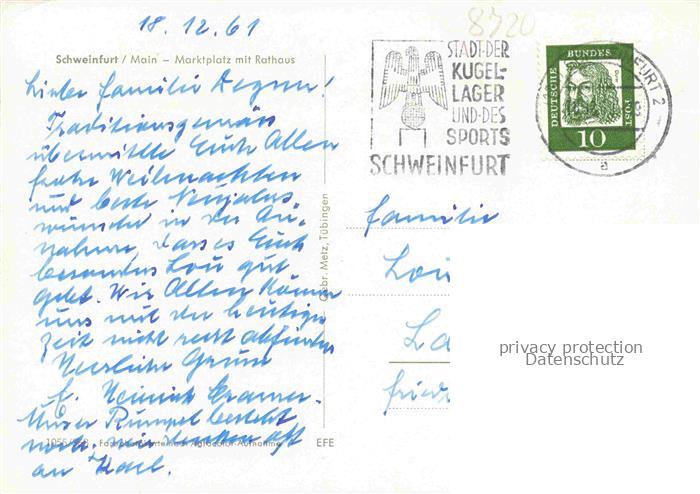 18.12.61
8720
Schweinfurt / Main – Marktplatz mit Rathaus
STADT·DER
KUGEL-
LAGER
UND·DES
SPORTS
SCHWEINFURT
DEUTSCHE BUNDES POST
10
FURT 2
a
Liebe Familie
Traditionsgemäss
übermittle Euch Allen
frohe Weihnachten
und beste Neujahrs-
wünsche in der An-
nahme, dass es Euch
besonders Lou gut
geht. Wir Allen können
uns mit der heutigen
Zeit nicht recht abfinden
Herzliche Grüsse
F. Heinrich Cramer.
Unser Rumpel besteht
noch. Wir denken oft
an Karl.
Gebr. Metz, Tübingen
Familie
Lou
La
Fried
privacy protection
Datenschutz
EFE